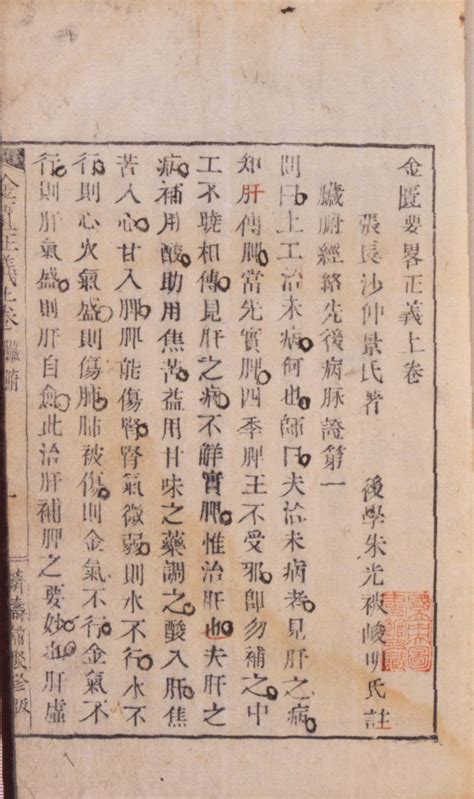 金匱要畧正義上卷
張長沙仲景氏著　後學朱光被峻明氏註
臟腑經絡先後病脉證第一
問曰上工治未病何也師曰夫治未病者見肝之病
知肝傳脾當先實脾四季脾王不受邪卽勿補之中
工不曉相傳見肝之病不觧實脾惟治肝也夫肝之
病補用酸助用焦苦益用甘味之藥調之酸入肝焦
苦入心甘入脾脾能傷腎腎氣微弱則水不行水不
行則心火氣盛則傷肺肺被傷則金氣不行金氣不
行則肝氣盛則肝自愈此治肝補脾之要妙也肝虛
金匱正義上卷 臟腑 一